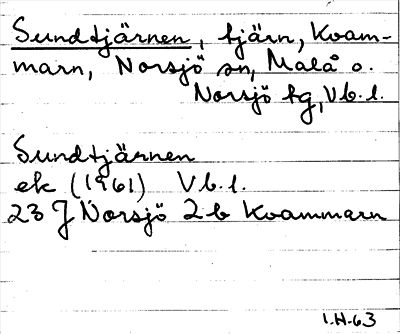 Sundtjärnen, tjärn, Kvam-
marn, Norsjö sn, Malå o.
Norsjö tg, Vb. l.
Sundtjärnen
ek (1961) Vb. l.
23 J Norsjö 2b Kvammarn
I.H.63